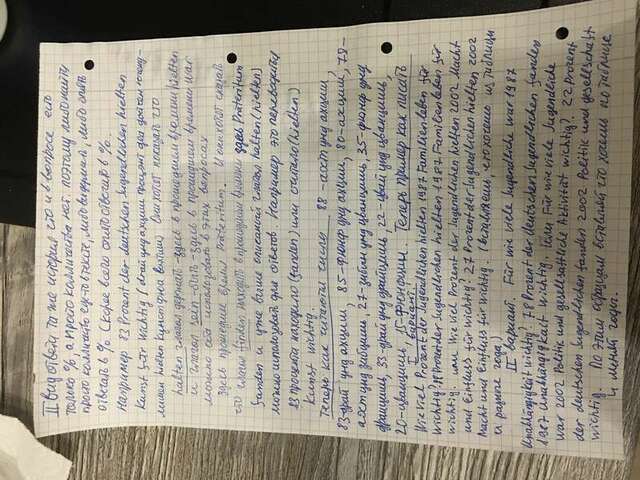 II вид ответа та же история что и в вопросе есть
только %, а просто колличества нет. поэтому либо найти
просто колличство где-то в тексте, либо выдумать, либо опять
отвечать в % (скорее всего опять отвечать в %.
Например 83 Prozent der deutschen Jugendlichen hielten
Kunst für wichtig (драй унд ахциш процент деа дойчен югенд-
лихен hielten кунст фюа вихтиш) Они хотят показать что
halten глагол держать - здесь в прошедшем времени hielten
и глагол sein - быть - здесь в прошедшем времени war
можно использовать в этих вопросах
здесь прошедшее время Präteritum. И они хотят сказать
что глагол finden находить в прошедшем времени здесь Präteritum
fanden и уже выше описаный глагол halten (hielten)
можно использовать для ответов. Например это переводится
83 процента находило (fanden) или считало (hielten)
Kunst wichtig.
Теперь как читаются числа 88 - ахт унд ахциш,
83-драй унд ахциш, 85-фюнф унд ахциш, 80-ахциш, 78-
ахт унд зибциш, 27-зибн унд цванциш, 35-фюнф унд
драйциш, 33-драй унд драйциш, 22-цвай унд цванциш,
20-цванциш, 15-фюнфциш. Теперь пример как писать
I вариант.
Wie viel Prozent der Jugendlichen hielten 1987 Familienleben für
wichtig? Prozent der Jugendlichen hielten 1987 Familienleben für
wichtig. или Wie viel Prozent der Jugendlichen hielten 2002 Macht
und Einfluss für wichtig? 27 Prozent der Jugendlichen hielten 2002
Macht und Einfluss für wichtig. (вставляешь, что хочешь из таблицы
и разные года.)
II вариант. Für wie viele Jugendliche war 1987
Unabhängigkeit wichtig? 78 Prozent der deutschen Jugendlichen fanden
1987 Unabhängigkeit wichtig. Или Für wie viele Jugendliche
war 2002 Politik und gesellsattliche Aktivität wichtig? 22 Prozent
der deutschen Jugendlichen fanden 2002 Politik und gesellschaft
wichtig. По этим образцам вставляй что хочешь по таблице
и меняй годы.